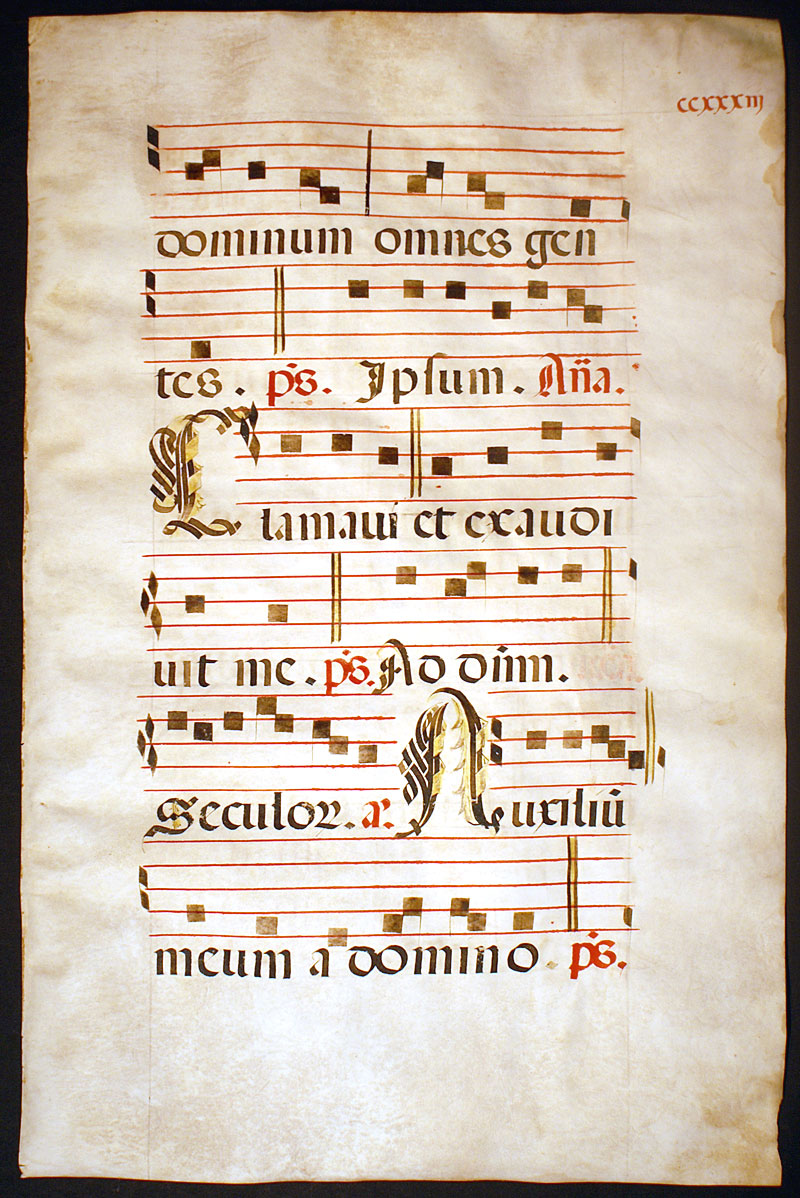 ccxxxiij
dominum omnes gen
tes. ps. Ipsum. Aña.
Clamaui et exaudi
uit me. ps. Ad dũm.
Seculoꝝ. a. Auxiliũ
meum a domino. ps.